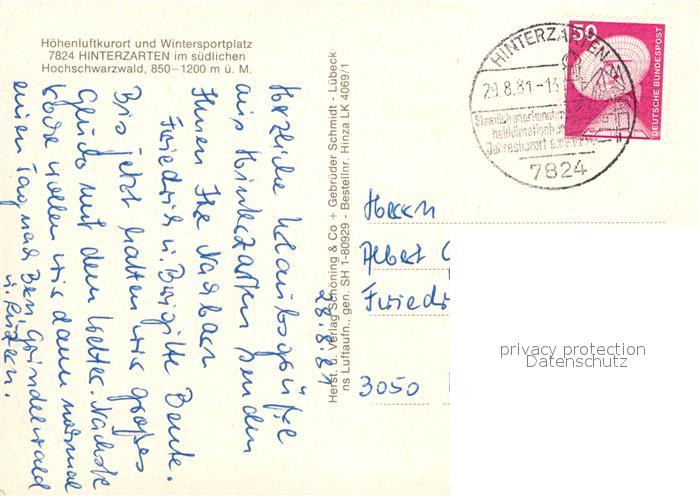 Höhenluftkurort und Wintersportplatz
7824 HINTERZARTEN im südlichen
Hochschwarzwald, 850—1200 m ü. M.
28.8.81
Herzliche Urlaubsgrüße
aus Hinterzarten senden
Ihnen Ihre Nachbarn
Friedrich u. Brigitte Beute.
Bis jetzt hatten wir großes
Glück mit dem Wetter. Nächste
Woche wollen wir dann nochmal
einen Tag nach Bern Grindelwald
u. Luzern.
Herst. u. Verlag Schöning & Co + Gebrüder Schmidt - Lübeck
ns Luftaufn., gen. SH 1-80929 - Bestellnr. Hinza LK 4069/1
HINTERZARTEN
29.8.81-
Staatlich anerkannter
heilklimatischer
Jahreskurort
7824
50
DEUTSCHE BUNDESPOST
Herrn
Albert
Friedr
3050
privacy protection
Datenschutz